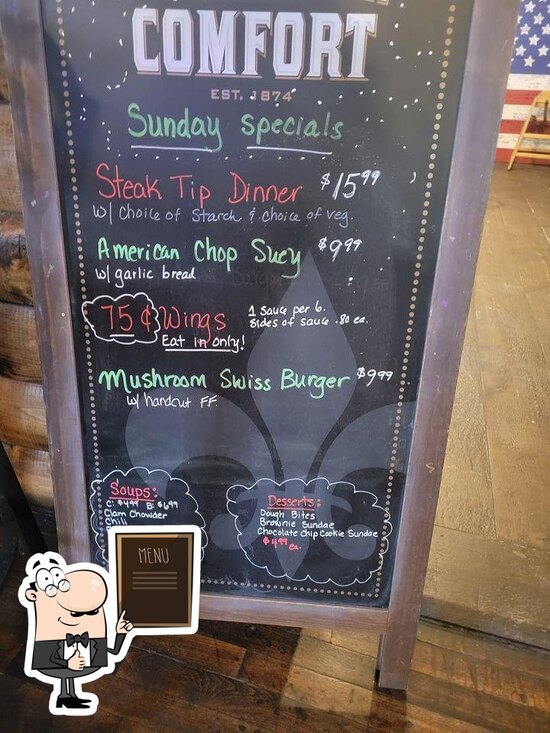 COMFORT
EST. 1874
Sunday Specials
Steak Tip Dinner $15.99
w/ choice of starch & choice of veg.
American Chop Suey $9.99
w/ garlic bread
75¢ Wings
1 sauce per 6.
sides of sauce .80 ea.
Eat in only!
Mushroom Swiss Burger $9.99
w/ handcut FF.
Soups:
C: $4.99 B: $6.99
Clam Chowder
Chili
Desserts:
Dough Bites
Brownie Sundae
Chocolate Chip Cookie Sundae
$4.99 ea.
MENU